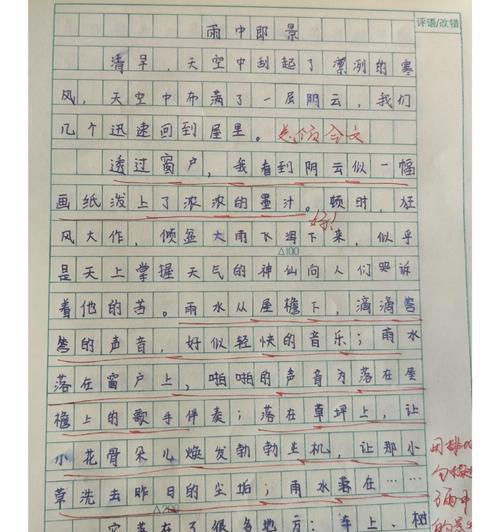 评语/改错
雨中即景
清早，天空中刮起了凛冽的寒
风，天空中布满了一层阴云，我们
几个迅速回到屋里。总领全文
透过窗户，我看到阴云似一幅
画纸泼上了浓浓的墨汁。顿时，狂
好！
风大作，倾盆大雨飞泻下来，似乎
△100
是天上掌握天气的神仙向人们哭诉
着他的苦。雨水从屋檐下，滴滴答
答的声音，好似轻快的音乐；雨水
落在窗户上，啪啪的声音为落在屋
檐上的歌手伴奏；落在草坪上，让
小花骨朵儿焕发勃勃生机，让那小
草洗去昨日的尘垢；雨水落在……
△200
它落在了很多地方：车上，树
用排比